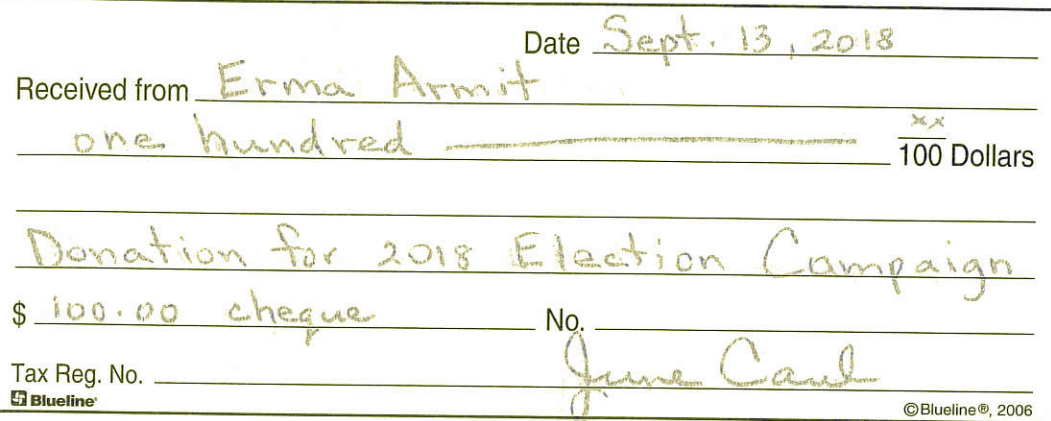 Date Sept. 13, 2018
Received from Erma Armit
one hundred xx/100 Dollars
Donation for 2018 Election Campaign
$ 100.00 cheque No.
June Caul
Tax Reg. No.
Blueline
©Blueline®, 2006